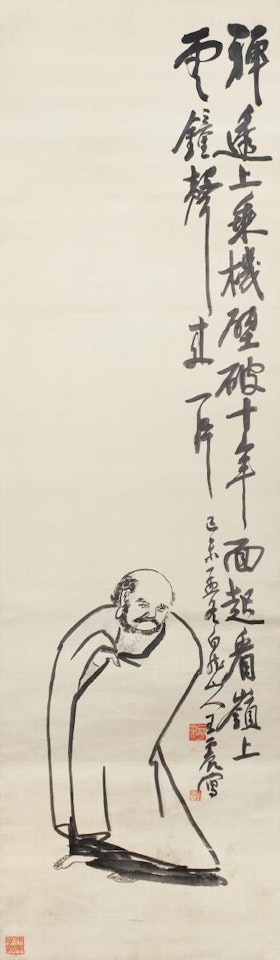 禪透上乘機壁破十年面起看嶺上
雲鐘聲来一片
己未孟冬白龍山人王震寫